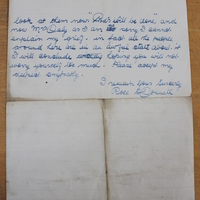 look at them now "God's will be done" and
now Mrs Daly as I am so sorry I cannot
explain my grief. in fact all the people
around here are in an awful state over it
I will conclude hoping you will not
worry yourself too much. Please accept my
sincerest sympathy.
I remain Yours Sincerely
Rose